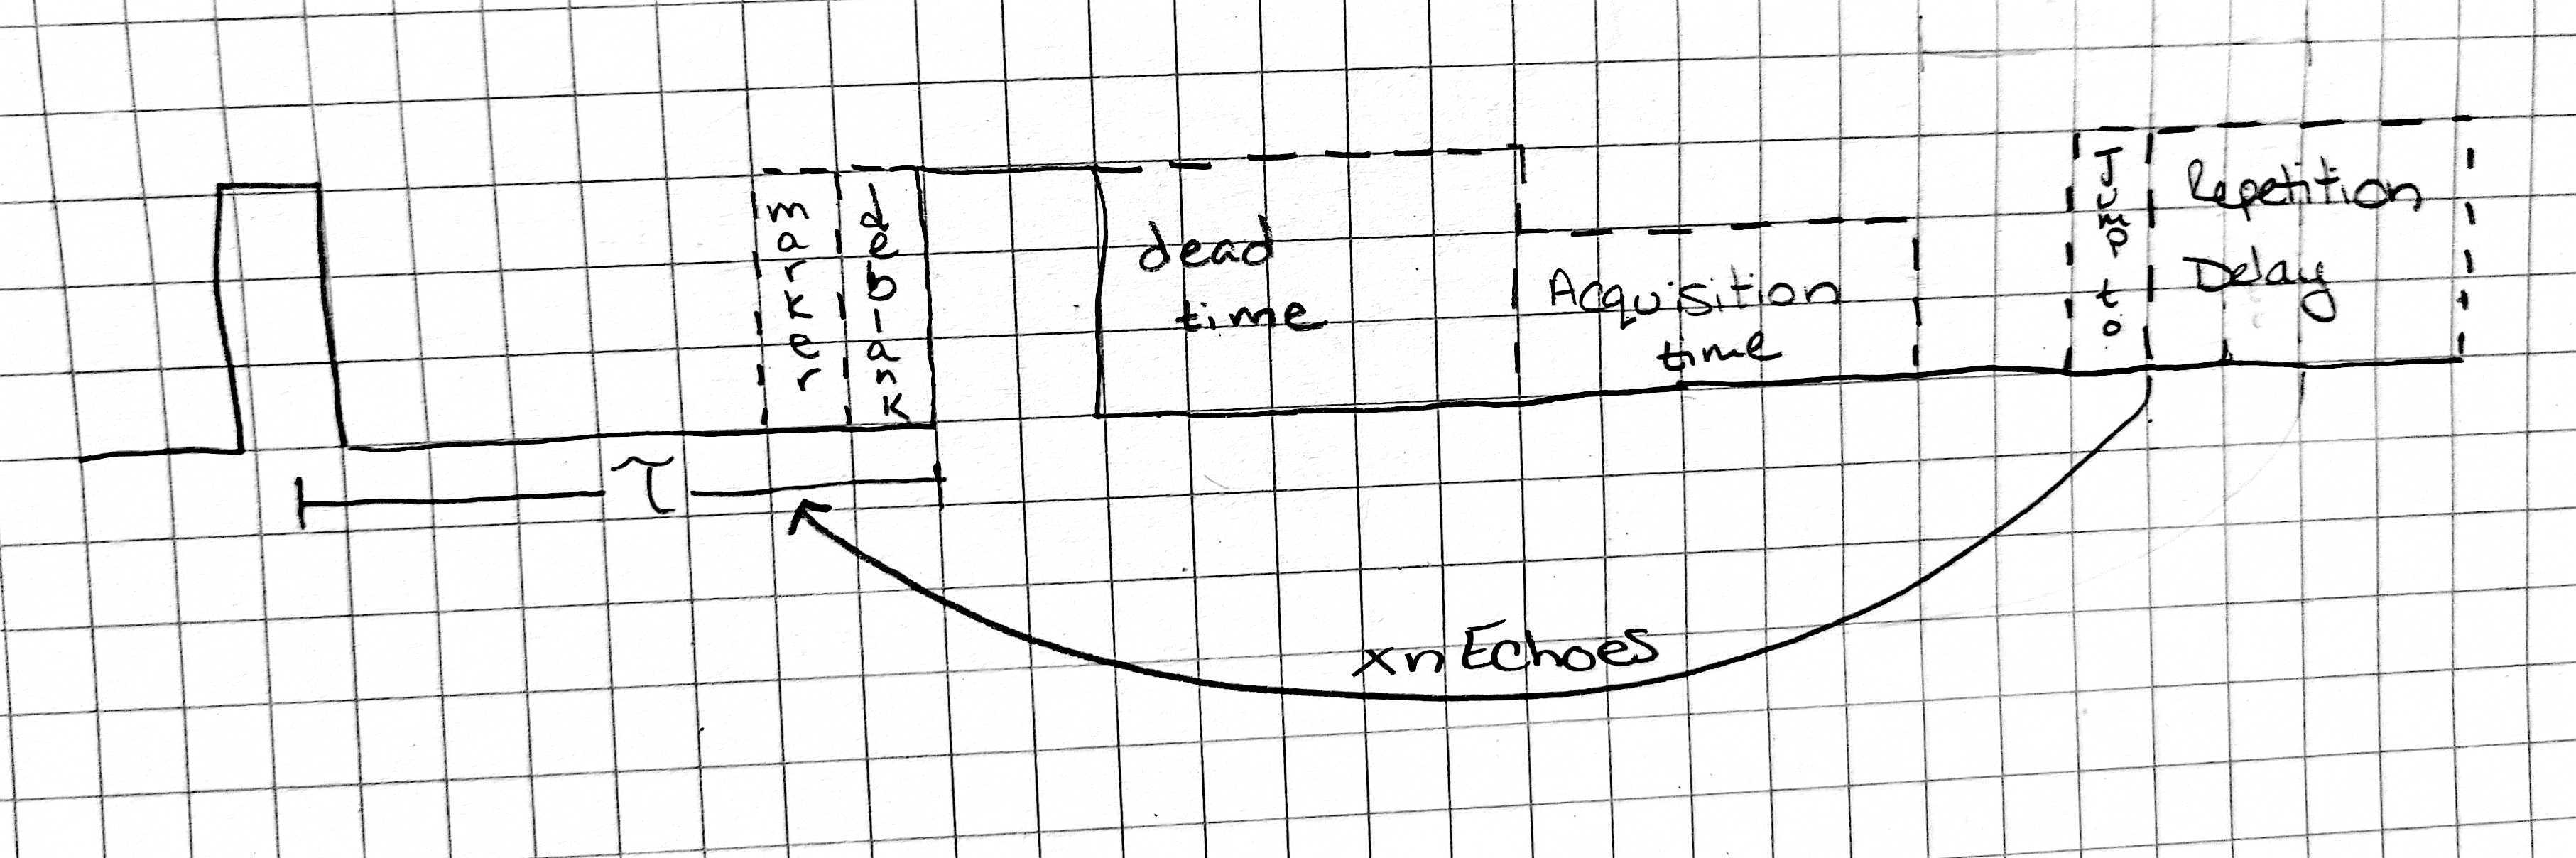 marker
deblank
dead
time
Acquisition
time
Jump to
Repetition
Delay
τ
xnEchoes